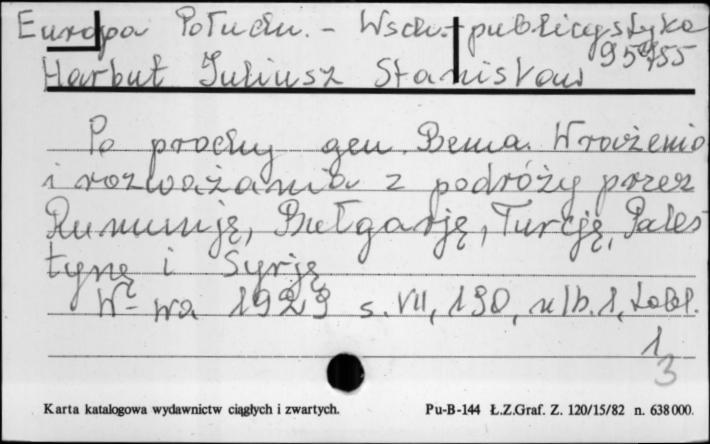 Europa Połudn. - Wsch. + publicystyka
95455
Harbut Juliusz Stanisław
Po prochy gen. Bema. Wrażenia
i rozważania z podróży przez
Rumunję, Bułgarję, Turcję, Pales
tynę i Syrję
W-wa 1929 s. VII, 190, nlb. 1, tabl.
1
3
Karta katalogowa wydawnictw ciągłych i zwartych. Pu-B-144 Ł.Z.Graf. Z. 120/15/82 n. 638000.